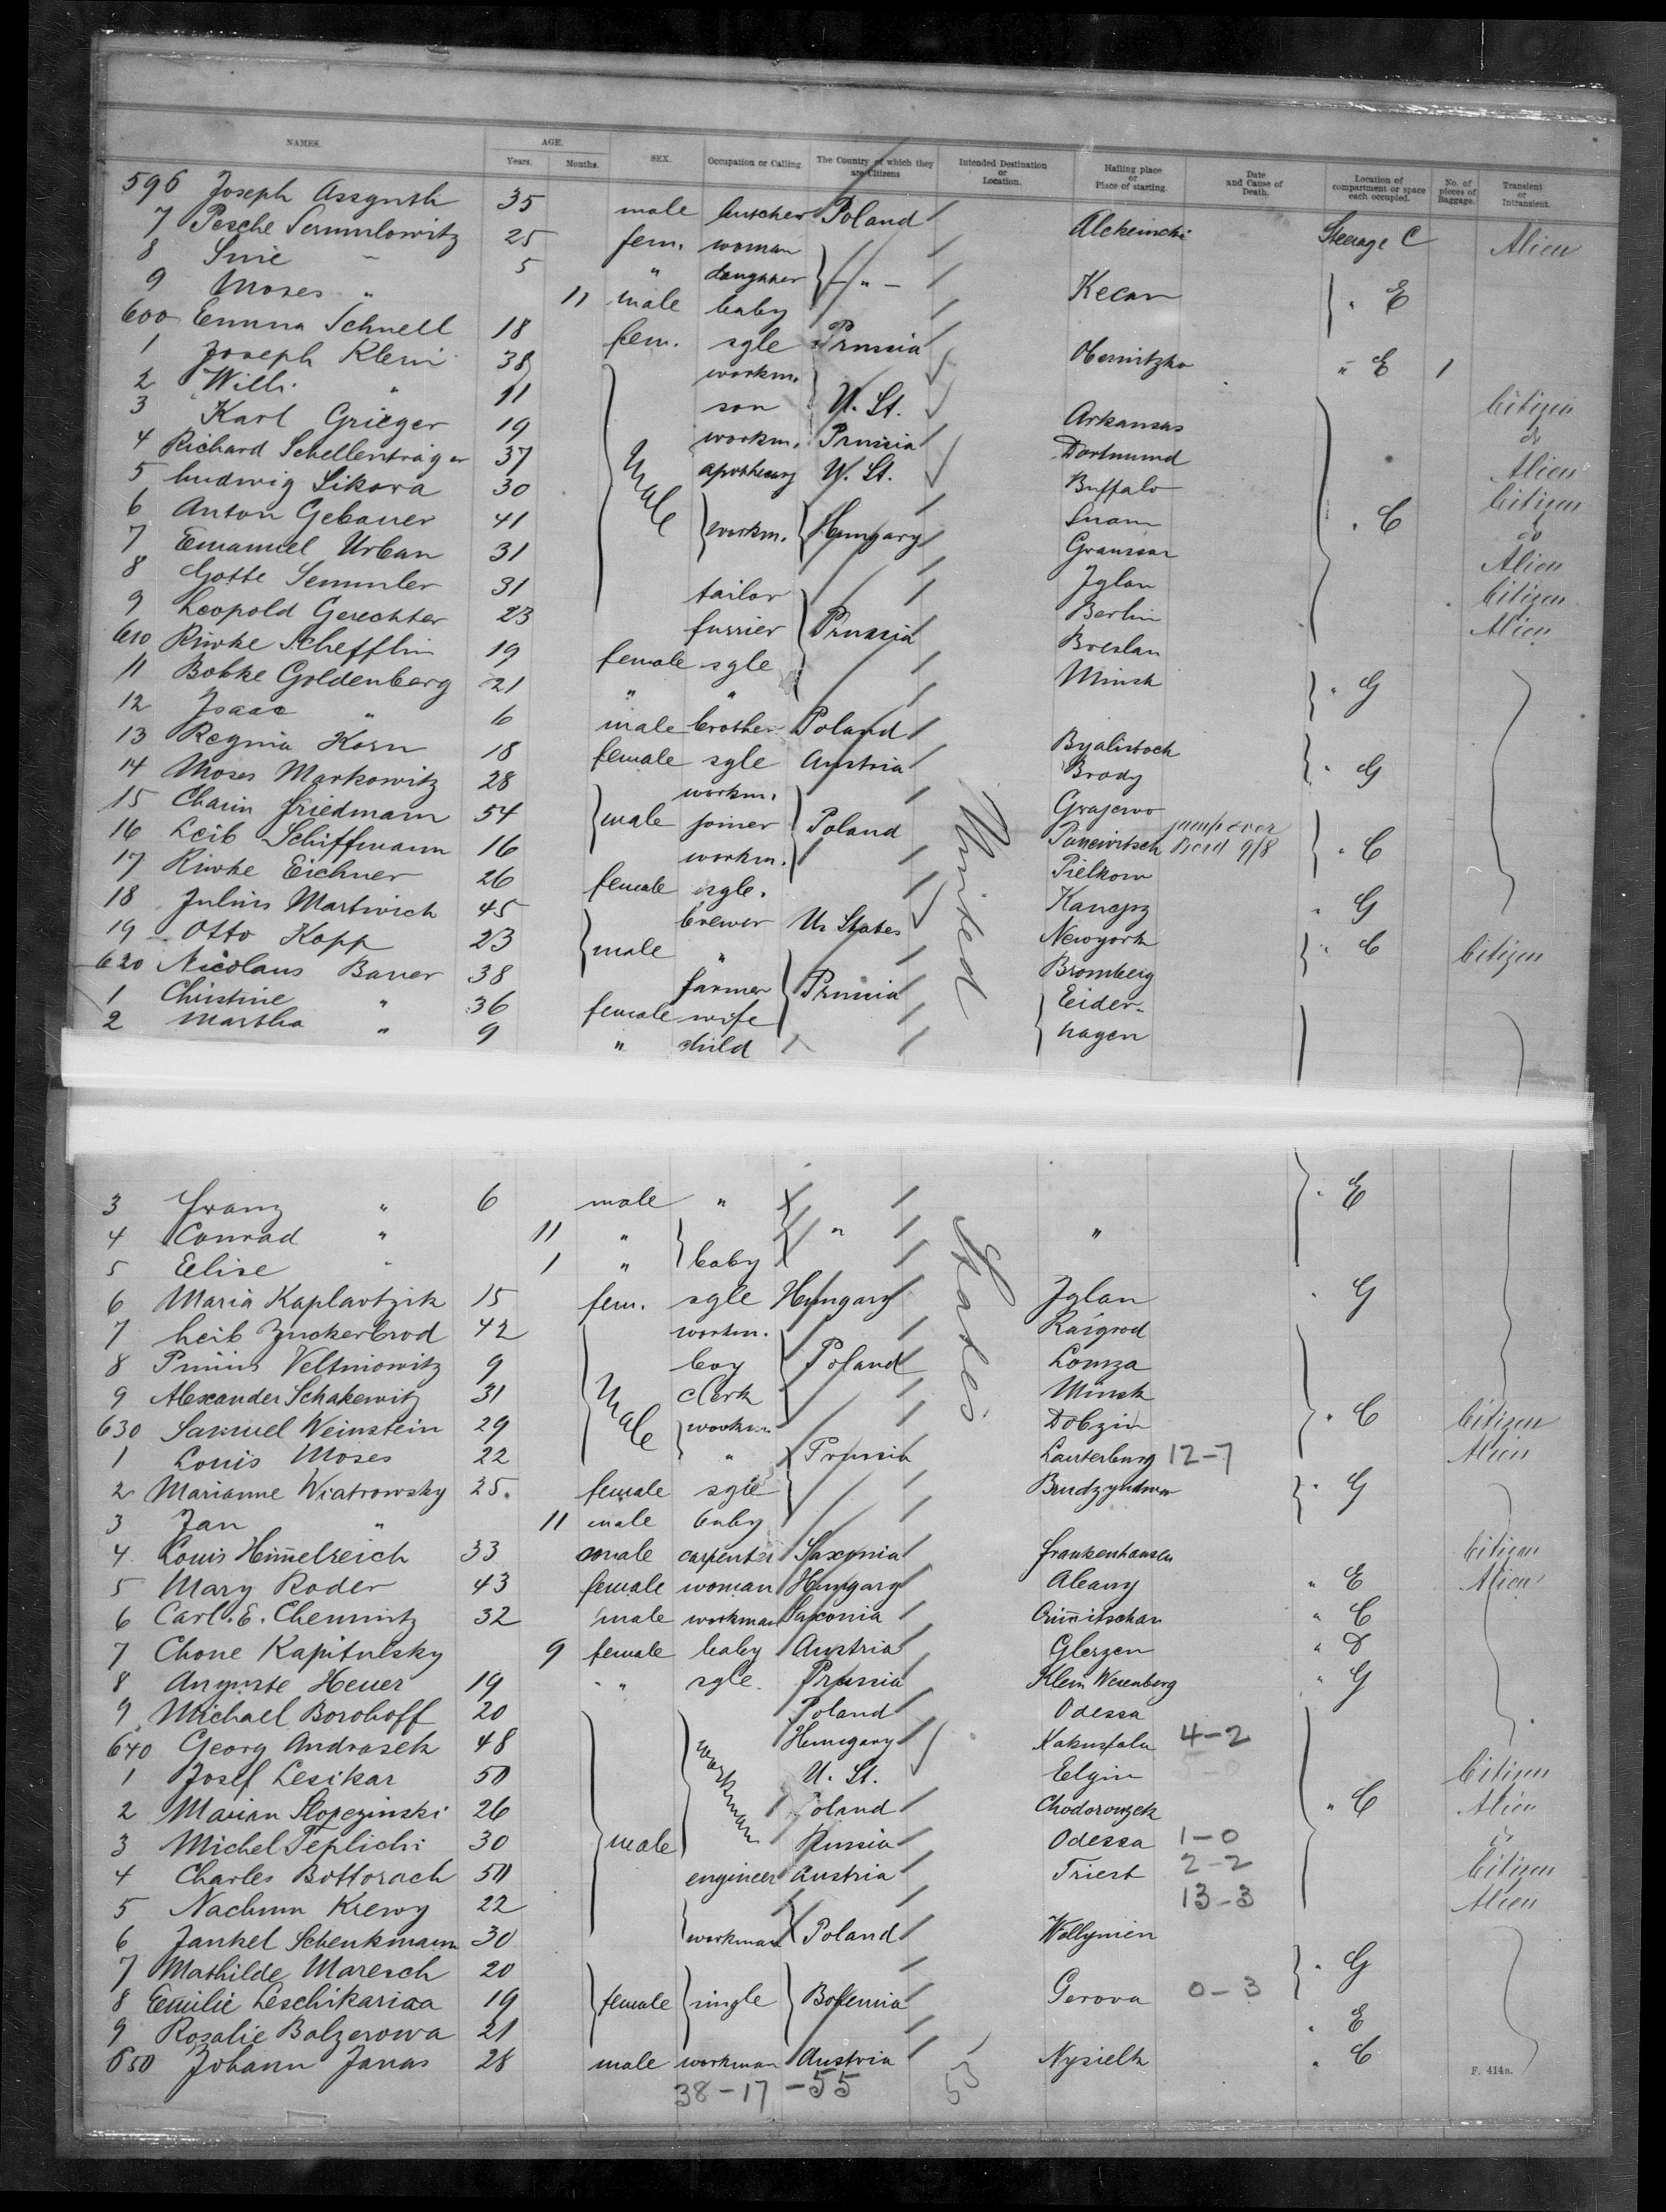 NAMES. AGE. Years. Months. SEX. Occupation or Calling. The Country of which they are Citizens Intended Destination or Location. Hailing place or Place of starting. Date and Cause of Death. Location of compartment or space each occupied. No. of pieces of Baggage. Transient or Intransient.
596 Joseph 35 male Poland Steerage C Alien
7 Pesche 25 fem. woman
8 5 " daughter — " — Kecan " E
9 Moses " 11 male baby
600 Emma Schnell 18 fem. sgle Prussia " E 1
1 Joseph Klein 38 workm. Citizen
2 Willi " 11 son U. St. Arkansas do
3 Karl Grieger 19 workm. Prussia Dortmund Alien
4 Richard Schellenträger 37 Male apothecary U. St. Buffalo Citizen
5 Ludwig Sikora 30 do
6 Anton Gebauer 41 workm. Hungary " C Alien
7 Emanuel Urban 31 Jglau Citizen
8 Gotte Semmler 31 tailor Berlin Alien
9 Leopold Gerechter 23 furrier Prussia Breslau
610 Riwke Schefflin 19 female sgle Minsk " G
11 Bobke Goldenberg 21 " "
12 Isaac " 6 male brother Poland
13 Regina Korn 18 female sgle Austria Brody " G
14 Moses Markowitz 28 workm. Grajewo
15 Chaim Friedmann 54 male joiner Poland " C
16 Leib Schiffmann 16 workm.
17 Riwke Eichner 26 female sgle. " G
18 Julius Martwich 45 brewer U. States Newyork " C Citizen
19 Otto Kopp 23 male " Bromberg
620 Nicolaus Bauer 38 farmer Prussia Eider-
1 Christine " 36 female wife hagen
2 Martha " 9 " child
United States
3 Franz " 6 male " " E
4 Conrad " 11 " " "
5 Elise " 1 " baby
6 Maria Kaplavtzik 15 fem. sgle Hungary Jglau " G
7 Leib Zuckerbrod 42 workm. Raigrod
8 9 boy Poland Lomza
9 Alexander Schakewitz 31 Male clerk Minsk
630 Samuel Weinstein 29 workm Dobzin " C Citizen
1 Louis Moses 22 " Prussia Lauterburg 12-7 Alien
2 Marianne Wiatrowsky 25. female sgle " G
3 Jan " 11 male baby
4 Louis Himmelreich 33 male carpenter Saxonia Frankenhausen Citizen
5 Mary Roder 43 female woman Hungary " E Alien
6 Carl. E. Chemnitz 32 male workman Saxonia Crimmitschau " C
7 Chone Kapitulsky 9 female baby Austria " D
8 Auguste Heuer 19 " sgle. Prussia " G
9 Michael Borohoff 20 Poland Odessa
640 Georg Andrasek 48 workman Hungary 4-2
1 Josef Lesikar 50 U. St. Elgin Citizen
2 Marian Slopczinski 26 Poland " C Alien
3 Michel Teplichi 30 male Russia Odessa 1-0 do
4 Charles Bottorach 50 engineer Austria Triest 2-2 Citizen
5 Nachum Krewy 22 13-3 Alien
6 Jankel Schenkmann 30 workman Poland Wollynien
7 Mathilde Maresch 20 " G
8 Emilie Leschikariaa 19 female single Bohemia Gerova 0-3
9 Rosalie Balzerowa 21 " E
650 Johann Janas 28 male workman Austria " C
38-17-55 55
F. 414a.